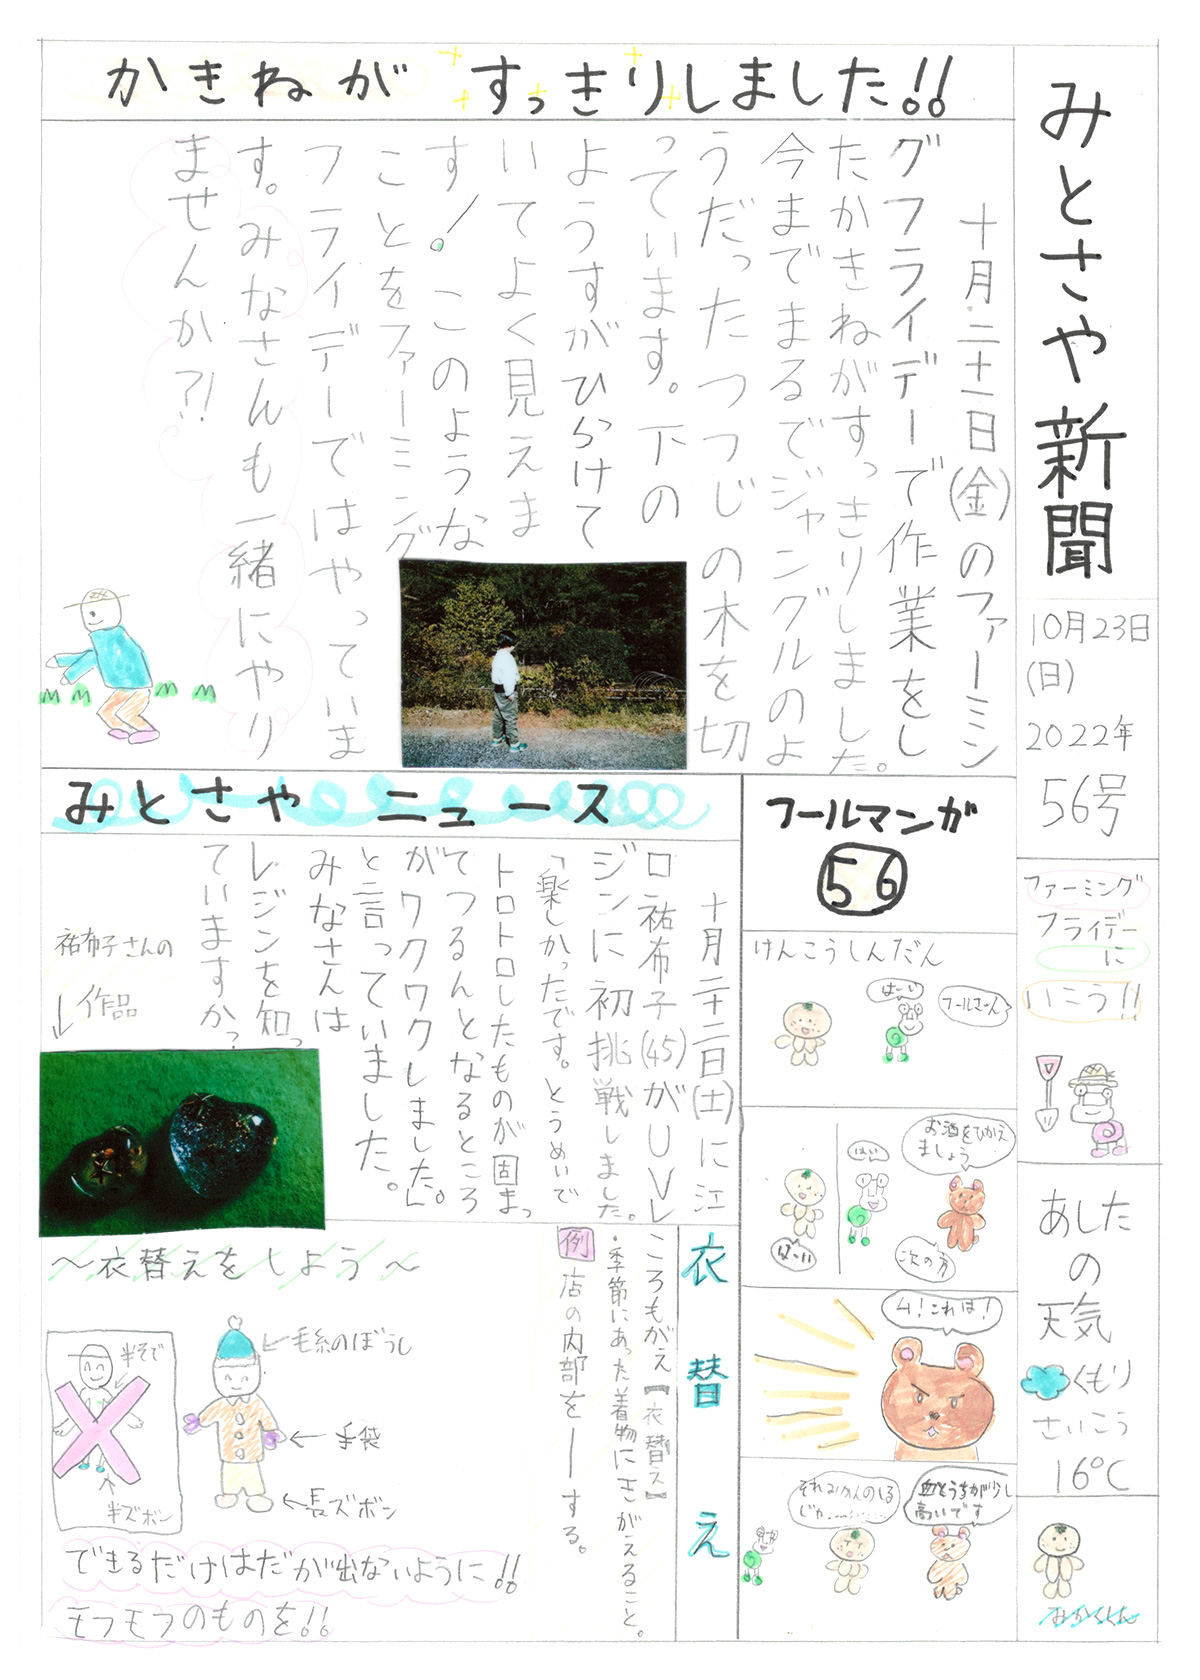 みとさや新聞
10月23日
(日)
2022年
56号
ファーミング
フライデー
に
いこう!!
あした
の
天気
くもり
さいこう
16℃
みかんくん
かきねが すっきりしました!!
十月二十一日(金)のファーミン
グフライデーで作業をし
たかきねがすっきりしました。
今までまるでジャングルのよ
うだったつつじの木を切
っています。下の
ようすがひらけて
いてよく見えま
す!このような
ことをファーミング
フライデーではやっていま
す。みなさんも一緒にやり
ませんか?!
みとさや ニュース
十月二十二日(土)に江
口祐布子(45)がUVレ
ジンに初挑戦しました。
「楽しかったです。とうめいで
トロトロしたものが固まっ
てつるんとなるところ
がワクワクしました。」
と言っていました。
みなさんは
レジンを知っ
ていますか?
祐布子さんの
作品
フールマンガ
56
けんこうしんだん
フールさーん
はーい
お酒をひかえ
ましょう
はい
次の方
はーい
ム!これは!
血とうちが少し
高いです
それみかんのしる
じゃ……
衣替え
ころもがえ【衣替え】
・季節にあった着物にきがえること。
例 店の内部を―する。
~衣替えをしよう~
毛糸のぼうし
手袋
長ズボン
半そで
半ズボン
できるだけはだが出ないように!!
モフモフのものを!!